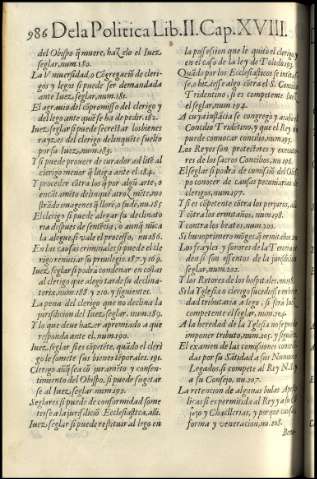 986 Dela Politica Lib.II. Cap.XVIII.
del Obispo q̃ muere, haz elo el Iuez
seglar, num.180.
La Vniuersidad, o Cõgregaciõ de cleri-
gos y legos si puede ser demandada
ante Iuez seglar, num.181.
El agrauio del cõpromisso del clerigo y
del lego ante quiẽ se ha de pedir.182.
Iuez seglar si puede secrestar los bienes
rayzes del clerigo delinquẽte suelto
por su Iuez, num.183.
Y si puede proueer de curador ad litẽ al
clerigo menor q̃ litiga ante el.184.
Y proceder cõtra los q̃ por algũ arte, o
encãtamẽto delinquẽ
El clerigo si puede alegar su declinato
ria despues de sentẽcia, o aunq̃ nũca
la alegue si vale el processo, nu.186.
En las causas criminales si puede el cle
rigo renũciar su priuilegio. 187. y 169.
Iuez seglar si podra condenar en costas
al clerigo que alego tarde su declina-
toria, num.188. y 209. y siguientes.
La pena del clerigo que no declina la
jurisdicion del Iuez seglar. num.189.
Y lo que deue hazer apremiado a que
responda ante el. num.190.
Iuez seglar si es cõpetẽte, quãdo el cleri
go le somete sus bienes tẽporales. 191.
Clerigo aunq̃ sea cõ juramẽto y consen-
timiento del Obispo, si puede sugetar
se al Iuez seglar, num.192.
Seglares si puedẽ de conformidad some
terse a la jurisdiciõ Ecclesiastica, alli.
Iuez seglar si puede restituir al lego en
la possession que le quitò el clerigo y
en el caso de la ley de Toledo.193.
Quãdo por los Ecclesiasticos se intẽtasse
o hiziesse algo cõtra el S. Concilio
Tridentino, si es competente Iuez
el seglar, num.194.
A cuya instãcia se congregò y acabò el
Concilio Tridẽtino, y que el Rey no
puede conuocar concilio, num.195.
Los Reyes son protectores y executo-
res de los sacros Concilios, nu.196.
El seglar si podrà de comissiõ del Obis-
po conocer de causas pecuniarias de
clerigos, num.197.
Y si es cõpetente cõtra los perjuros, nu.
Y cõtra los ermitaños, num.198.
Y contra los beatos, num.200.
Si los ermitaños
Los frayles y sorores de la Tercera or-
den si son essentos de la jurisdicion
seglar, num.202.
Y los Retores de los hospitales, num.
Si la Yglesia o clerigo sucede en hereda-
dad tributaria a lego, si serà Iuez
competente el seglar, num.204
A la heredad de la Yglesia no se puede
imponer tributo, num.205. y siguien.
El examen de las comissiones concedi-
das por su Sãtidad a sus Nuncios y
Legados, si compete al Rey N.S. y
a su Consejo. nu.207.
La retencion de algunas bulas Aposto-
licas si es permitida al Rey y a su Cõ-
sejo y Chãcillerias, y por que causas,
forma y veneracion, nu.208.